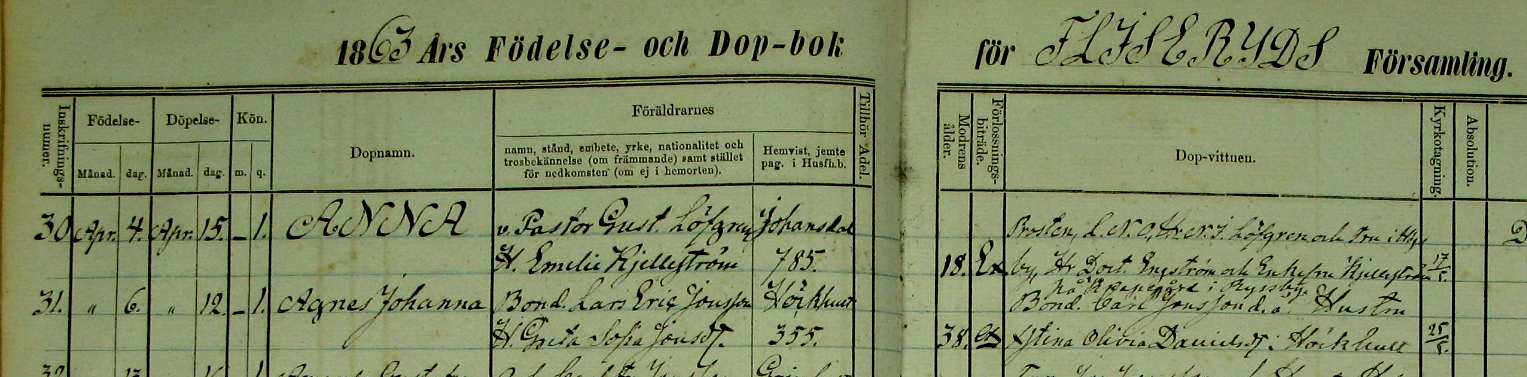 1863 Års Födelse- och Dop-bok för FLISERYDS Församling.
Inskrifnings-numer.
Födelse-
Månad. dag.
Döpelse-
Månad. dag.
Kön.
m. q.
Dopnamn.
Föräldrarnes
namn, stånd, embete, yrke, nationalitet och
trosbekännelse (om främmande) samt stället
för nedkomsten (om ej i hemorten).
Hemvist, jemte
pag. i Husfh.b.
Tillhör Adel.
Modrens ålder.
Förlossnings-biträde.
Dop-vittnen.
Kyrkotagning.
Absolution.
30 Apr. 4. Apr. 15. – 1. ANNA v. Pastor Gust. Löfgren Johansdal
H. Emelie Kjellström 785.
Prosten, L. N. O. Löfgren och Fru i
18. Ex by, Hr Doct. Engström och Enkefru Kjellström 17/5
på i Ryssby.
31. " 6. " 12. – 1. Agnes Johanna Bond. Lars Eric Jonsson Höckhult
H. Greta Sofia Jonsd. 355.
Bond. Carl Jonsson d.ä. Hustru
38. Stina Olivia Danielsd. i Höckhult 25/5